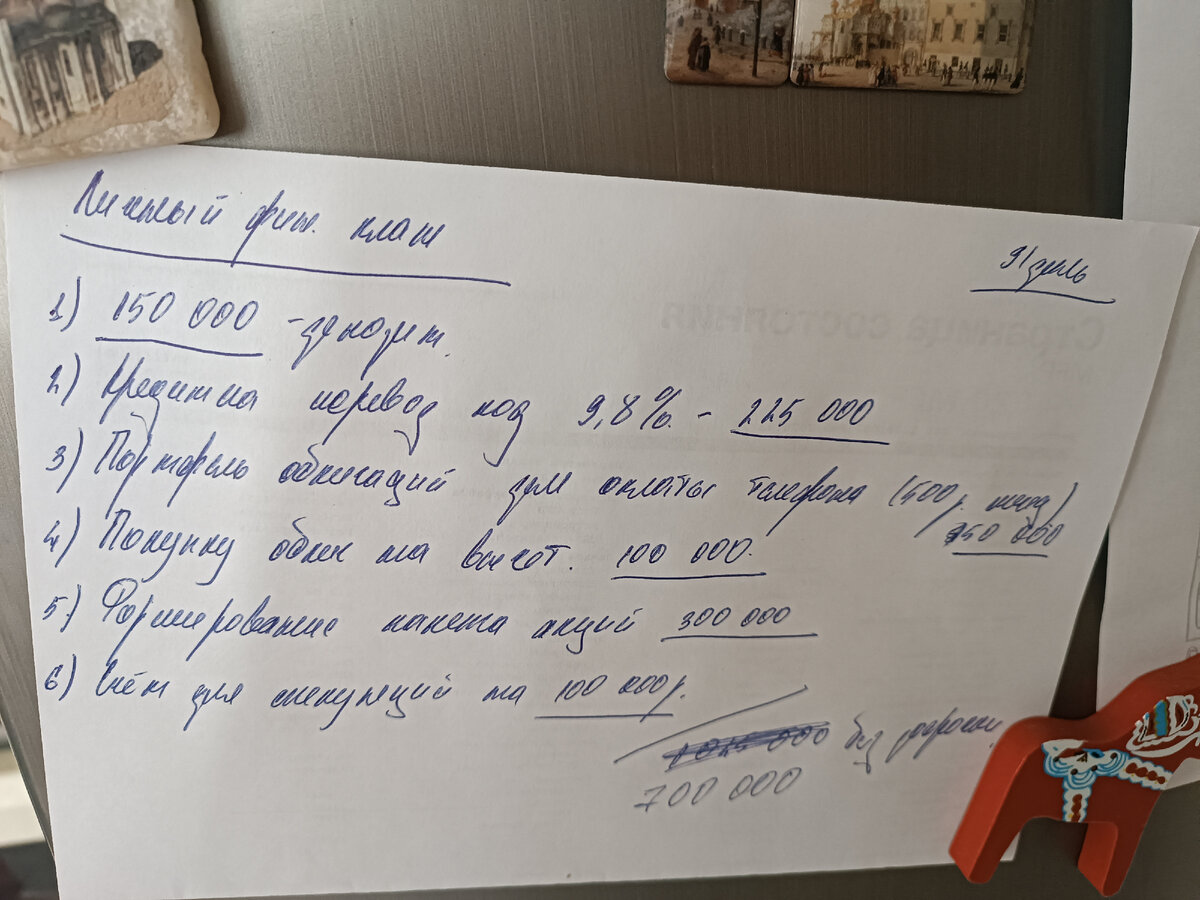 Личный фин. план
1) 150 000 - депозит.
2) Кредитка перевод под 9,8% - 225 000
3) Портфель облигаций для оплаты телефона (500 р. мес)
150 000
4) Покупку облиг на высот. 100 000.
5) Формирование пакета акций 300 000
6) Счёт для спекуляций на 100 000 р.
1 025 000 без
700 000
Страница состояния